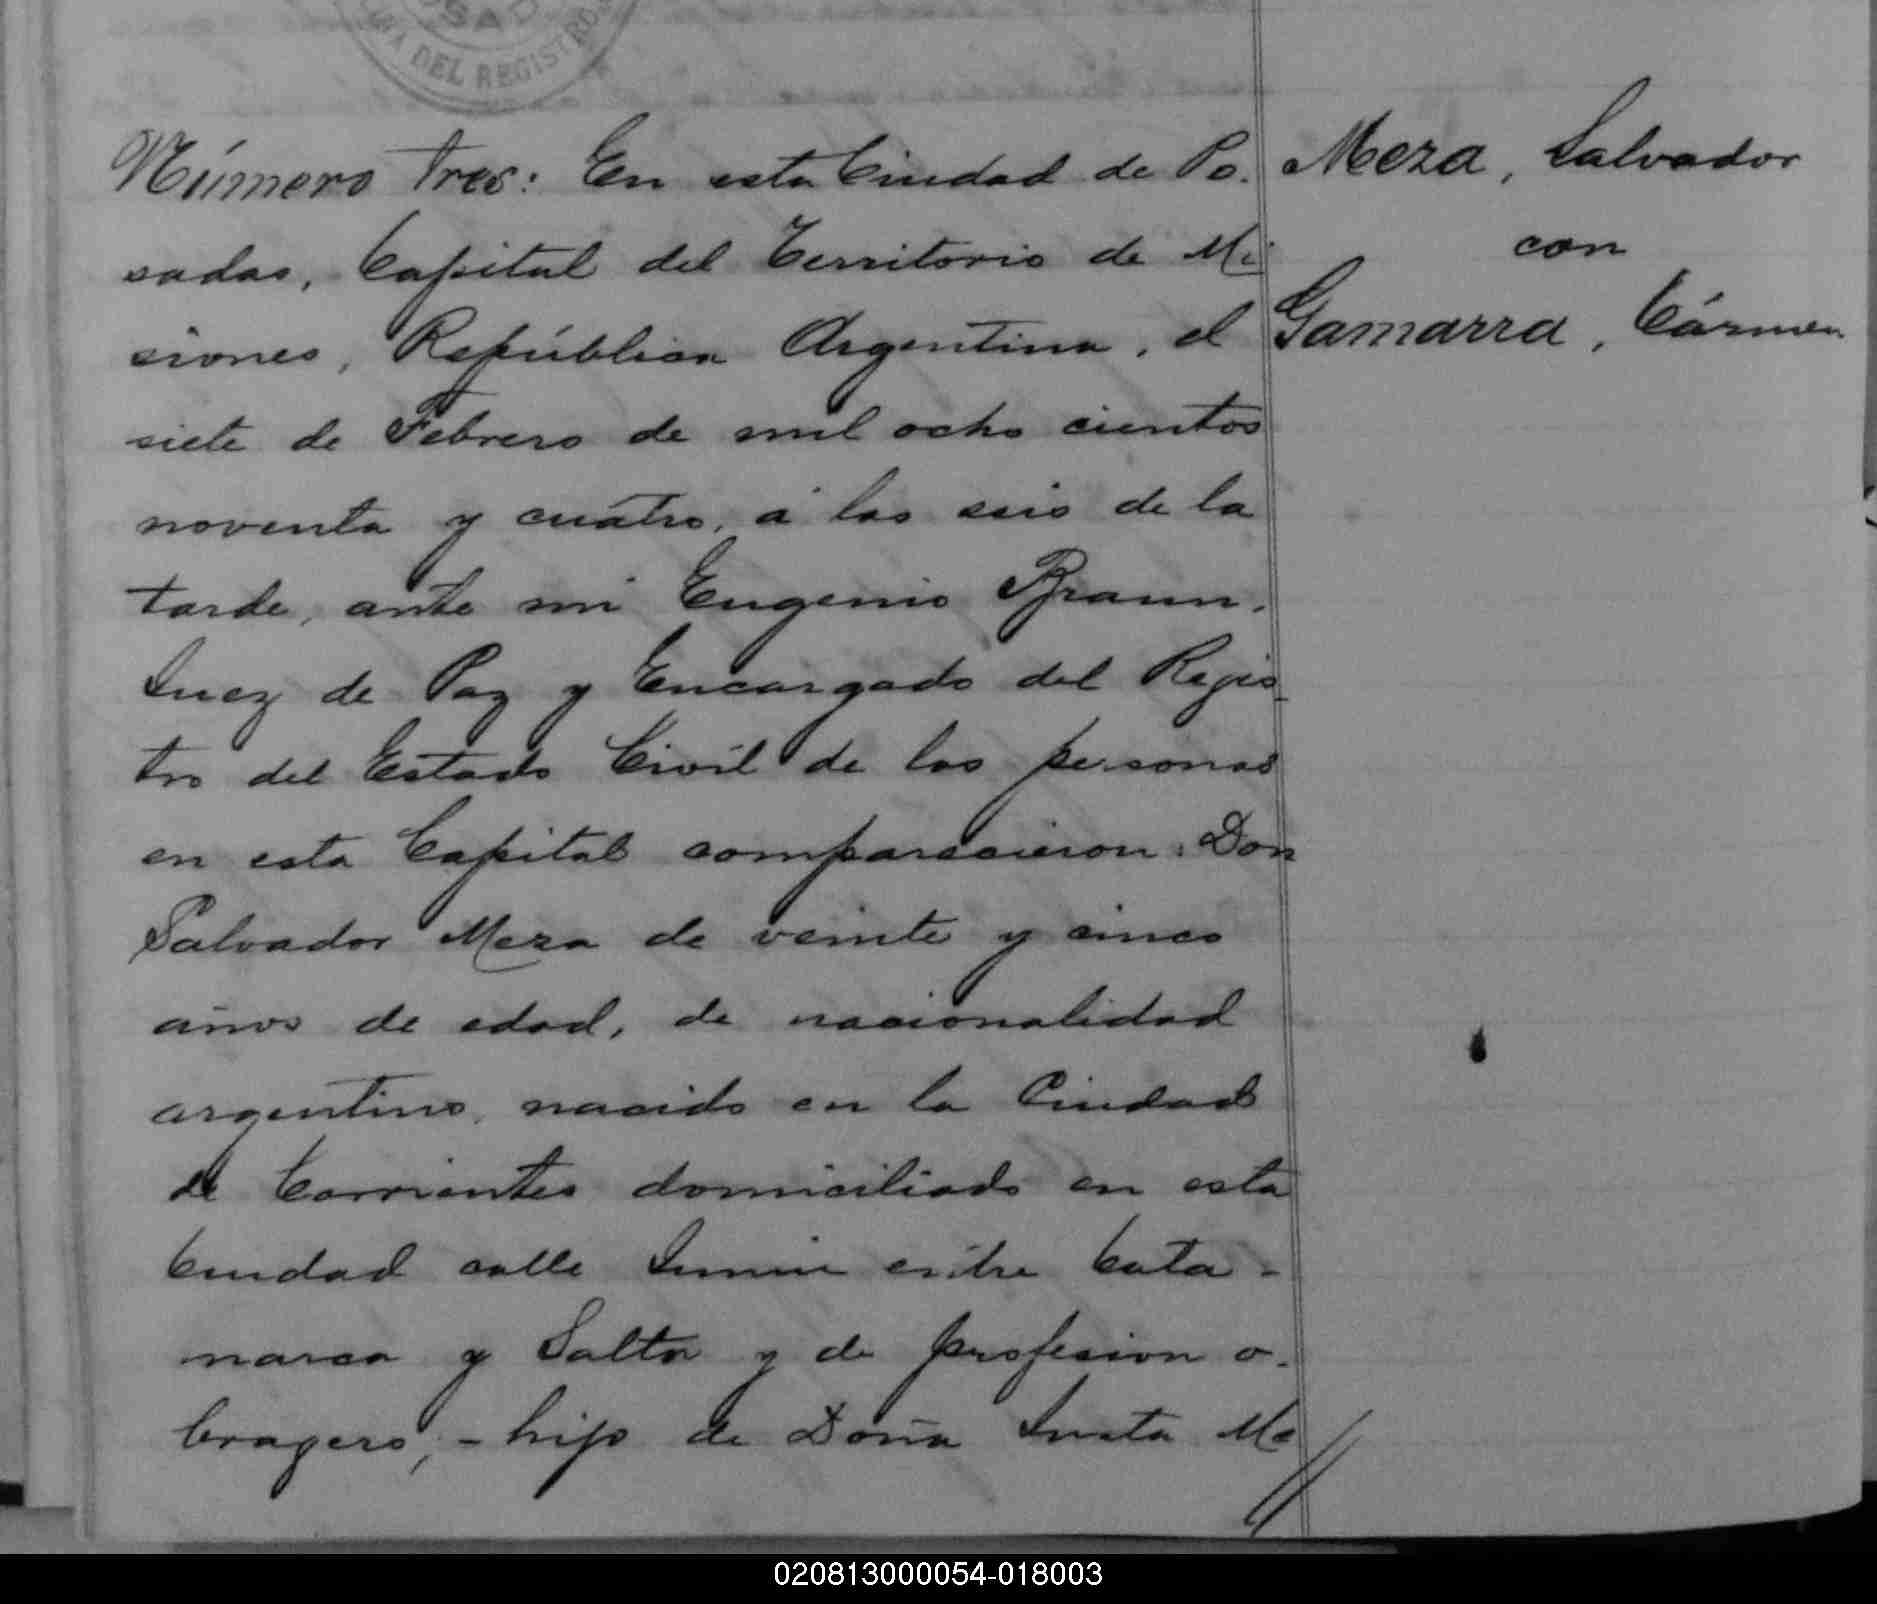 DEL REGISTRO
Número Tres: En esta Ciudad de Po-
sadas, Capital del Territorio de Mi
siones, República Argentina, el
siete de Febrero de mil ocho cientos
noventa y cuatro, á las seis de la
tarde, ante mi Eugenio Braun,
Juez de Paz y Encargado del Regis-
tro del Estado Civil de las personas
en esta Capital comparecieron: Don
Salvador Meza de veinte y cinco
años de edad, de nacionalidad
argentino, nacido en la Ciudad
de Corrientes domiciliado en esta
Ciudad calle Junin entre Cata-
marca y Salta y de profesion o-
bragero, - hijo de Doña Justa Me
Meza, Salvador
con
Gamarra, Cármen
020813000054-018003